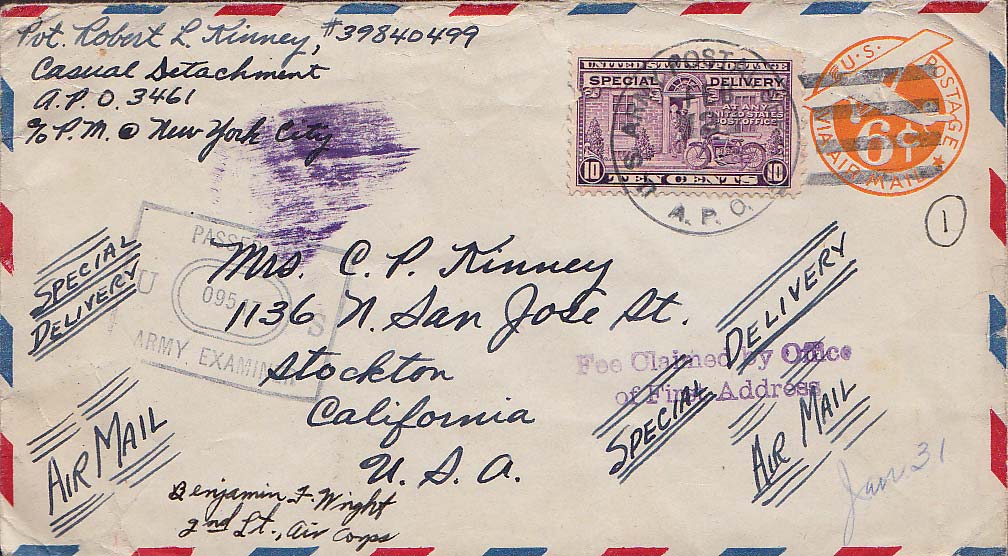 Pvt. Robert L. Kinney, #39840499
Casual Detachment
A.P.O. 3461
c/o P.M. @ New York City
UNITED STATES
SPECIAL DELIVERY
AT ANY
UNITED STATES
POST OFFICE
10 TEN CENTS 10
A.P.O.
U.S. POSTAGE
VIA AIR MAIL
6¢
1
SPECIAL
DELIVERY
PASSED
U 095 S
ARMY EXAMINER
Mrs. C. P. Kinney
1136 N. San Jose St.
Stockton
California
U. S. A.
Fee Claimed by Office
of First Address
SPECIAL DELIVERY
AIR MAIL
AIR MAIL
Jan. 31
Benjamin F. Wright
2nd Lt., Air Corps